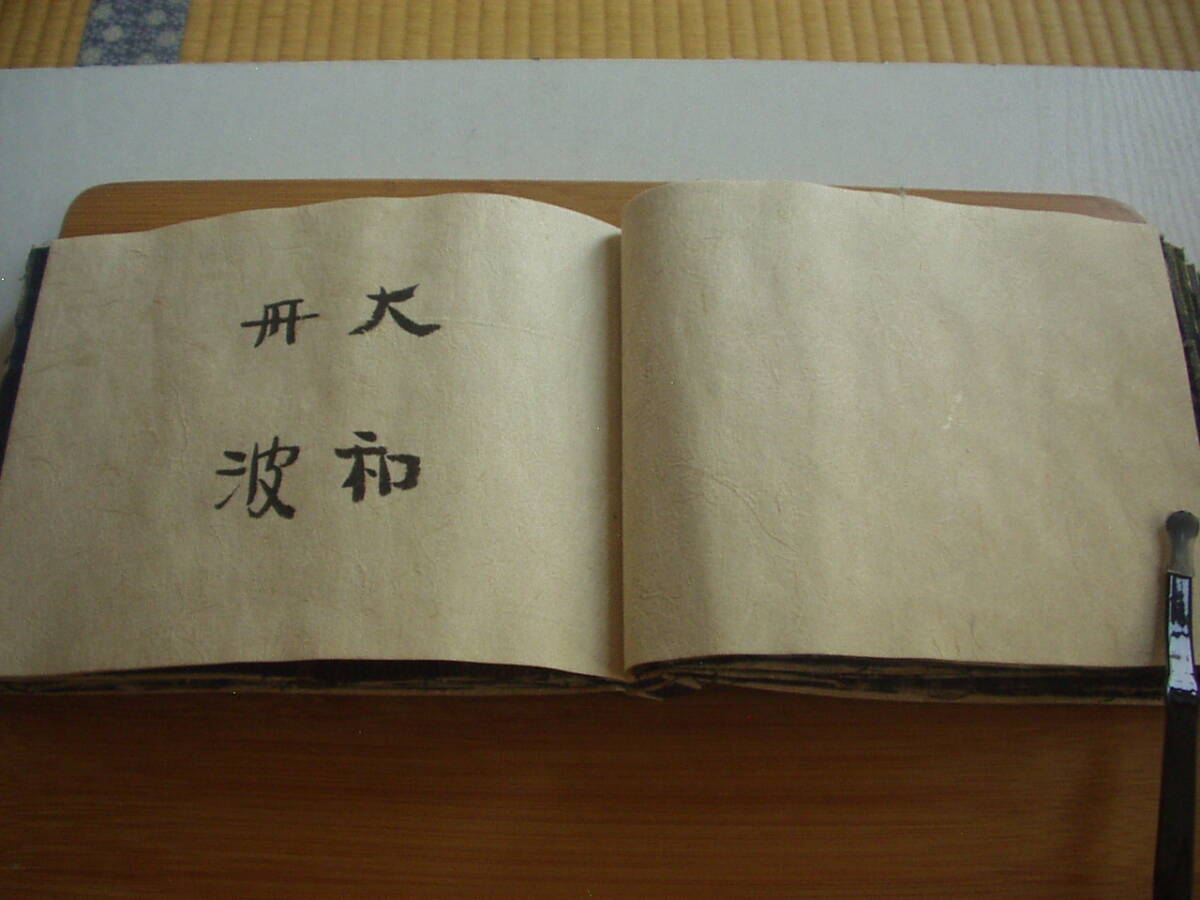 大和
丹波